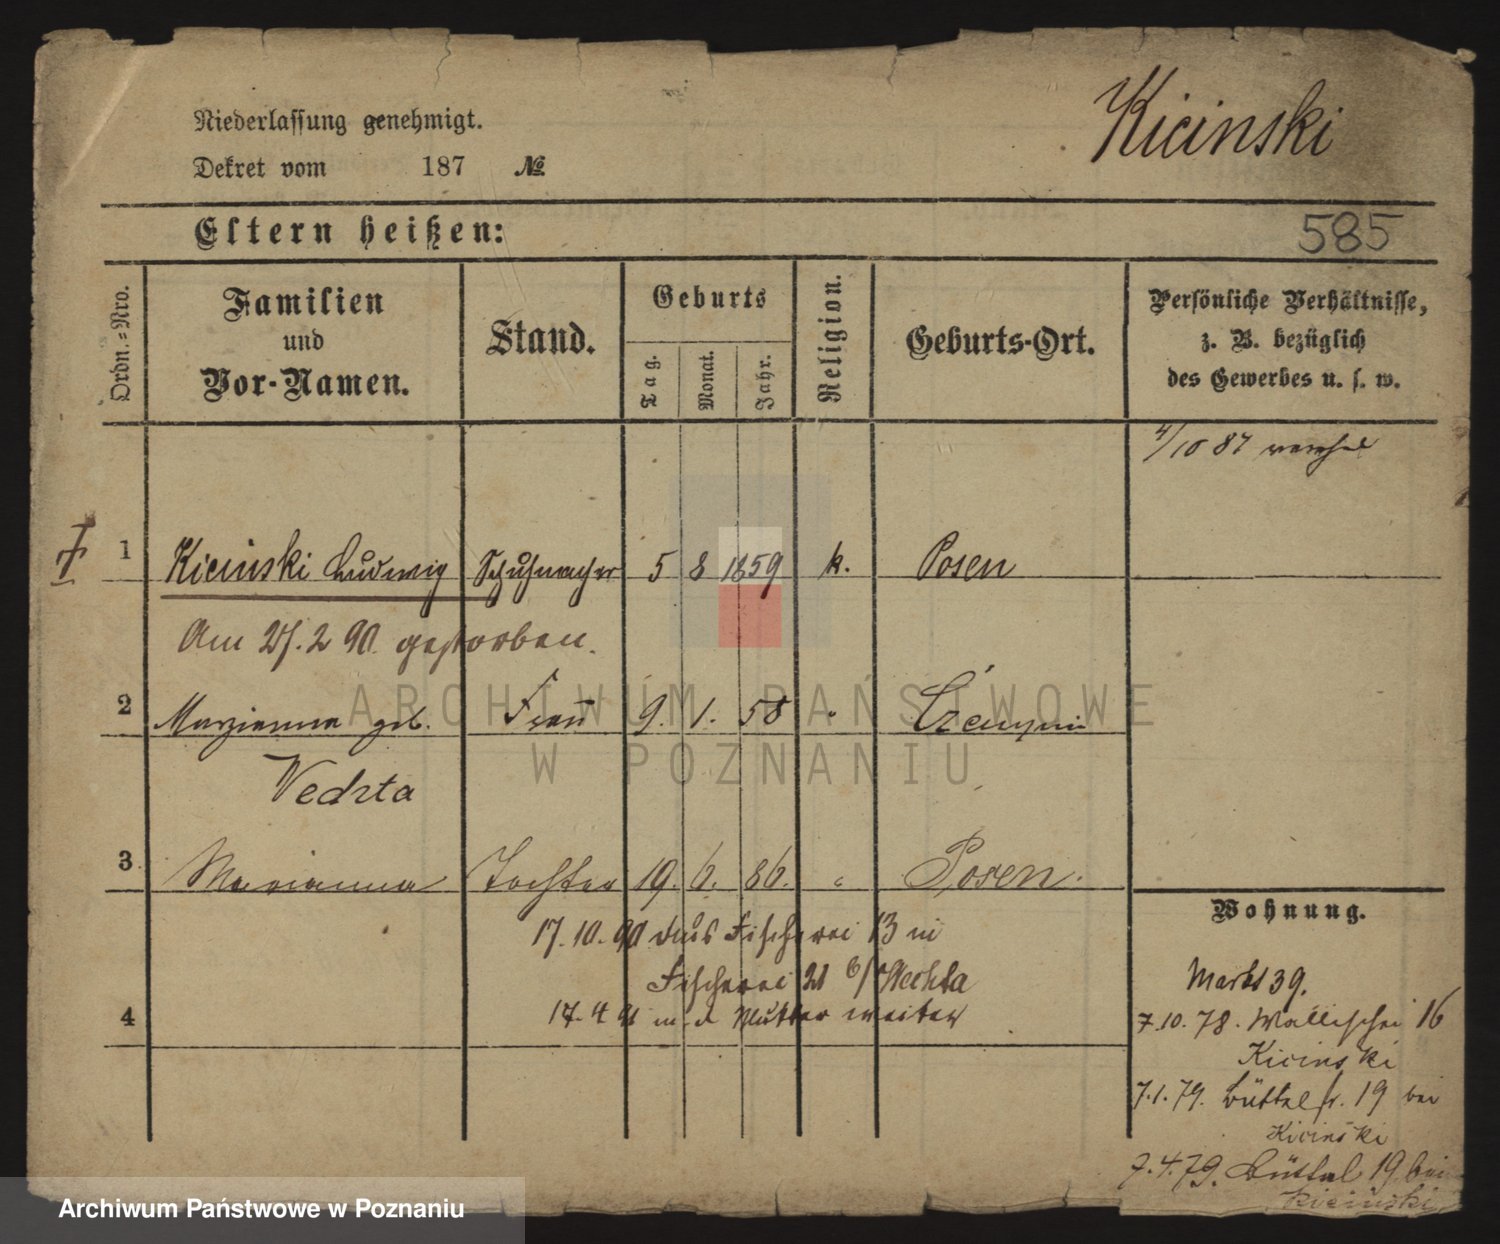 Kicinski
Niederlassung genehmigt.
Dekret vom 187 №
Eltern heißen:
585
Ordn.-Nro.
Familien
und
Vor-Namen.
Stand.
Geburts
Tag.
Monat.
Jahr.
Religion.
Geburts-Ort.
Persönliche Verhältnisse,
z. B. bezüglich
des Gewerbes u. s. w.
4/10 87
1 Kicinski Ludwig Schuhmacher 5 8 1859 k. Posen
Am 27. 2 90. gestorben.
2 Marianna geb. Frau 9. 1. 58 "
3 Marianna Tochter 19. 6. 86. " Posen.
17. 10. 90 aus Fischerei 13 in
Fischerei 21 b/
17. 4 Mutter weiter
4
Wohnung.
Markt 39.
7. 10. 78. Wallischei 16
Kicinski
7. 1. 79. Büttelstr. 19 bei
Kicinski
7. 4. 79. Büttel 19 bei
Kicinski
ARCHIWUM PAŃSTWOWE
W POZNANIU
Archiwum Państwowe w Poznaniu